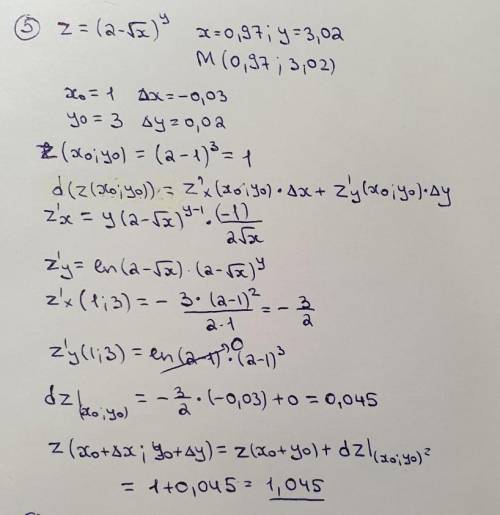 ⑤ z = (2-√x)^y   x=0,97; y=3,02
M(0,97; 3,02)
x₀ = 1   Δx = -0,03
y₀ = 3   Δy = 0,02
z(x₀;y₀) = (2-1)³ = 1
d(z(x₀;y₀)) = z'x(x₀;y₀)·Δx + z'y(x₀;y₀)·Δy
z'x = y(2-√x)^(y-1) · (-1)/(2√x)
z'y = ln(2-√x)·(2-√x)^y
z'x(1;3) = - 3·(2-1)²/(2·1) = - 3/2
z'y(1;3) = ln(2-1)⁰·(2-1)³
dz|(x₀;y₀) = - 3/2 · (-0,03) + 0 = 0,045
z(x₀+Δx; y₀+Δy) = z(x₀+y₀) + dz|(x₀;y₀) =
= 1+0,045 = 1,045